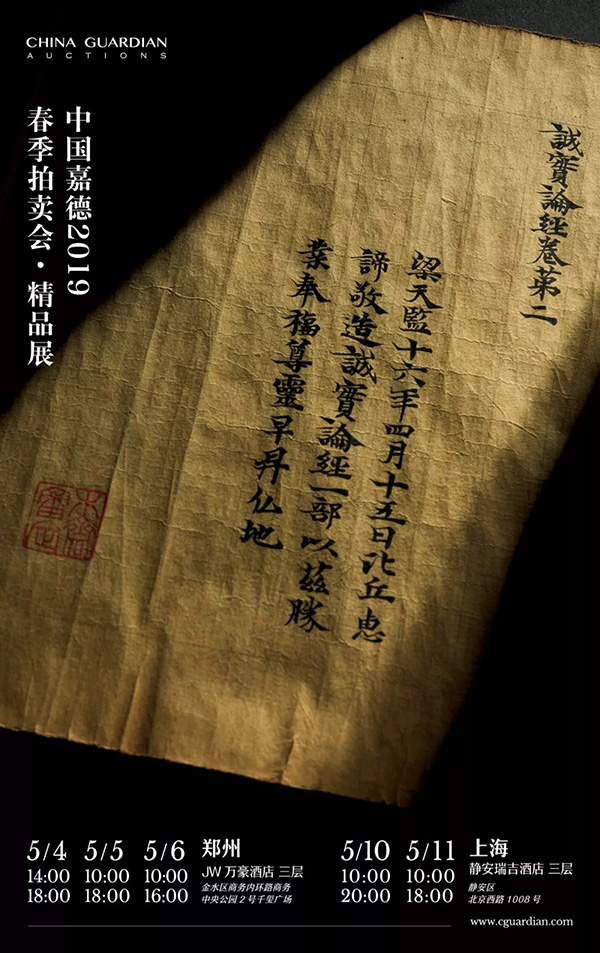 CHINA GUARDIAN
AUCTIONS
中国嘉德2019
春季拍卖会·精品展
誠實論經卷第二
梁天監十六年四月十五日比丘惠
諦敬造誠實論經一部以茲勝
業奉福尊靈早昇仏地
5/4 14:00 18:00
5/5 10:00 18:00
5/6 10:00 16:00
郑州
JW 万豪酒店 三层
金水区商务内环路商务
中央公园 2 号千玺广场
5/10 10:00 20:00
5/11 10:00 18:00
上海
静安瑞吉酒店 三层
静安区
北京西路 1008 号
www.cguardian.com